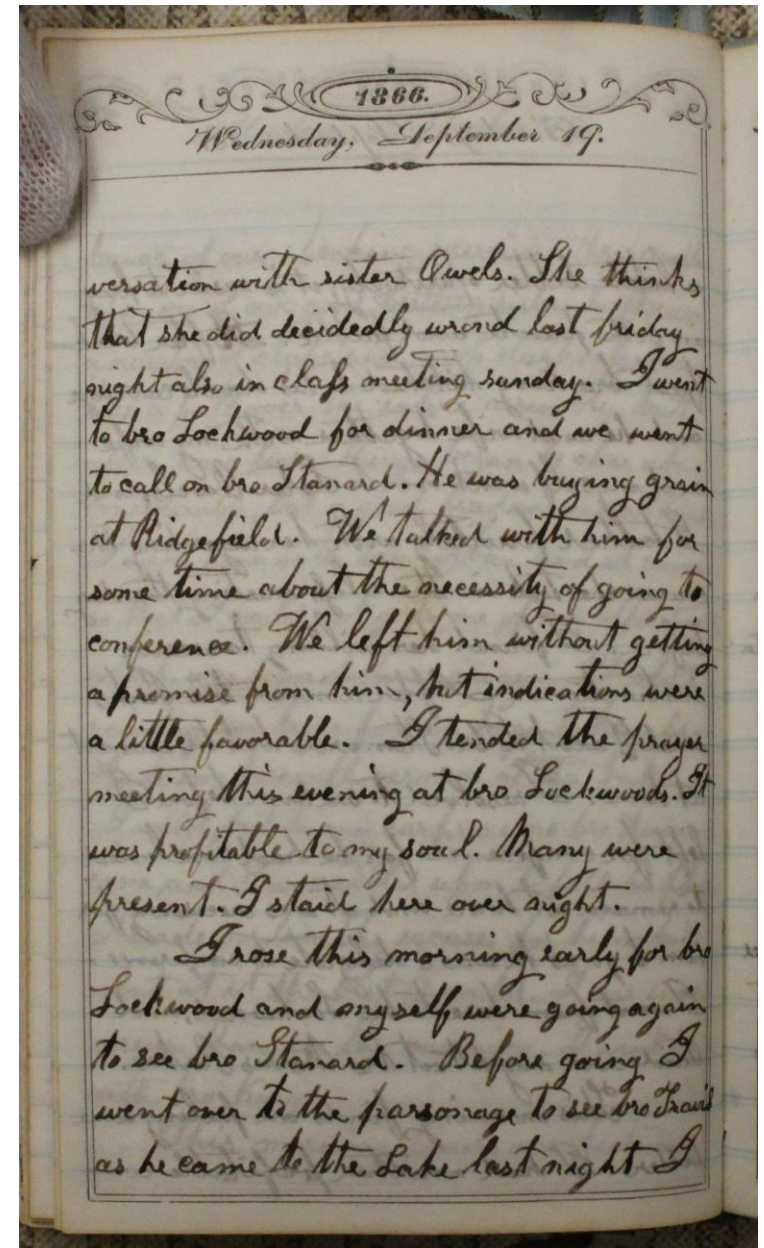 1866.
Wednesday, September 19.
versation with sister Owels. She thinks
that she did decidedly wrond last friday
night also in class meeting sunday. I went
to bro Lockwood for dinner and we went
to call on bro Stanard. He was buying grain
at Ridgefield. We talked with him for
some time about the necessity of going to
conference. We left him without getting
a promise from him, but indications were
a little favorable. I tended the prayer
meeting this evening at bro Lockwoods. It
was profitable to my soul. Many were
present. I staid here over night.
I rose this morning early for bro
Lockwood and myself were going again
to see bro Stanard. Before going I
went over to the parsonage to see bro Travis
as he came to the Lake last night I